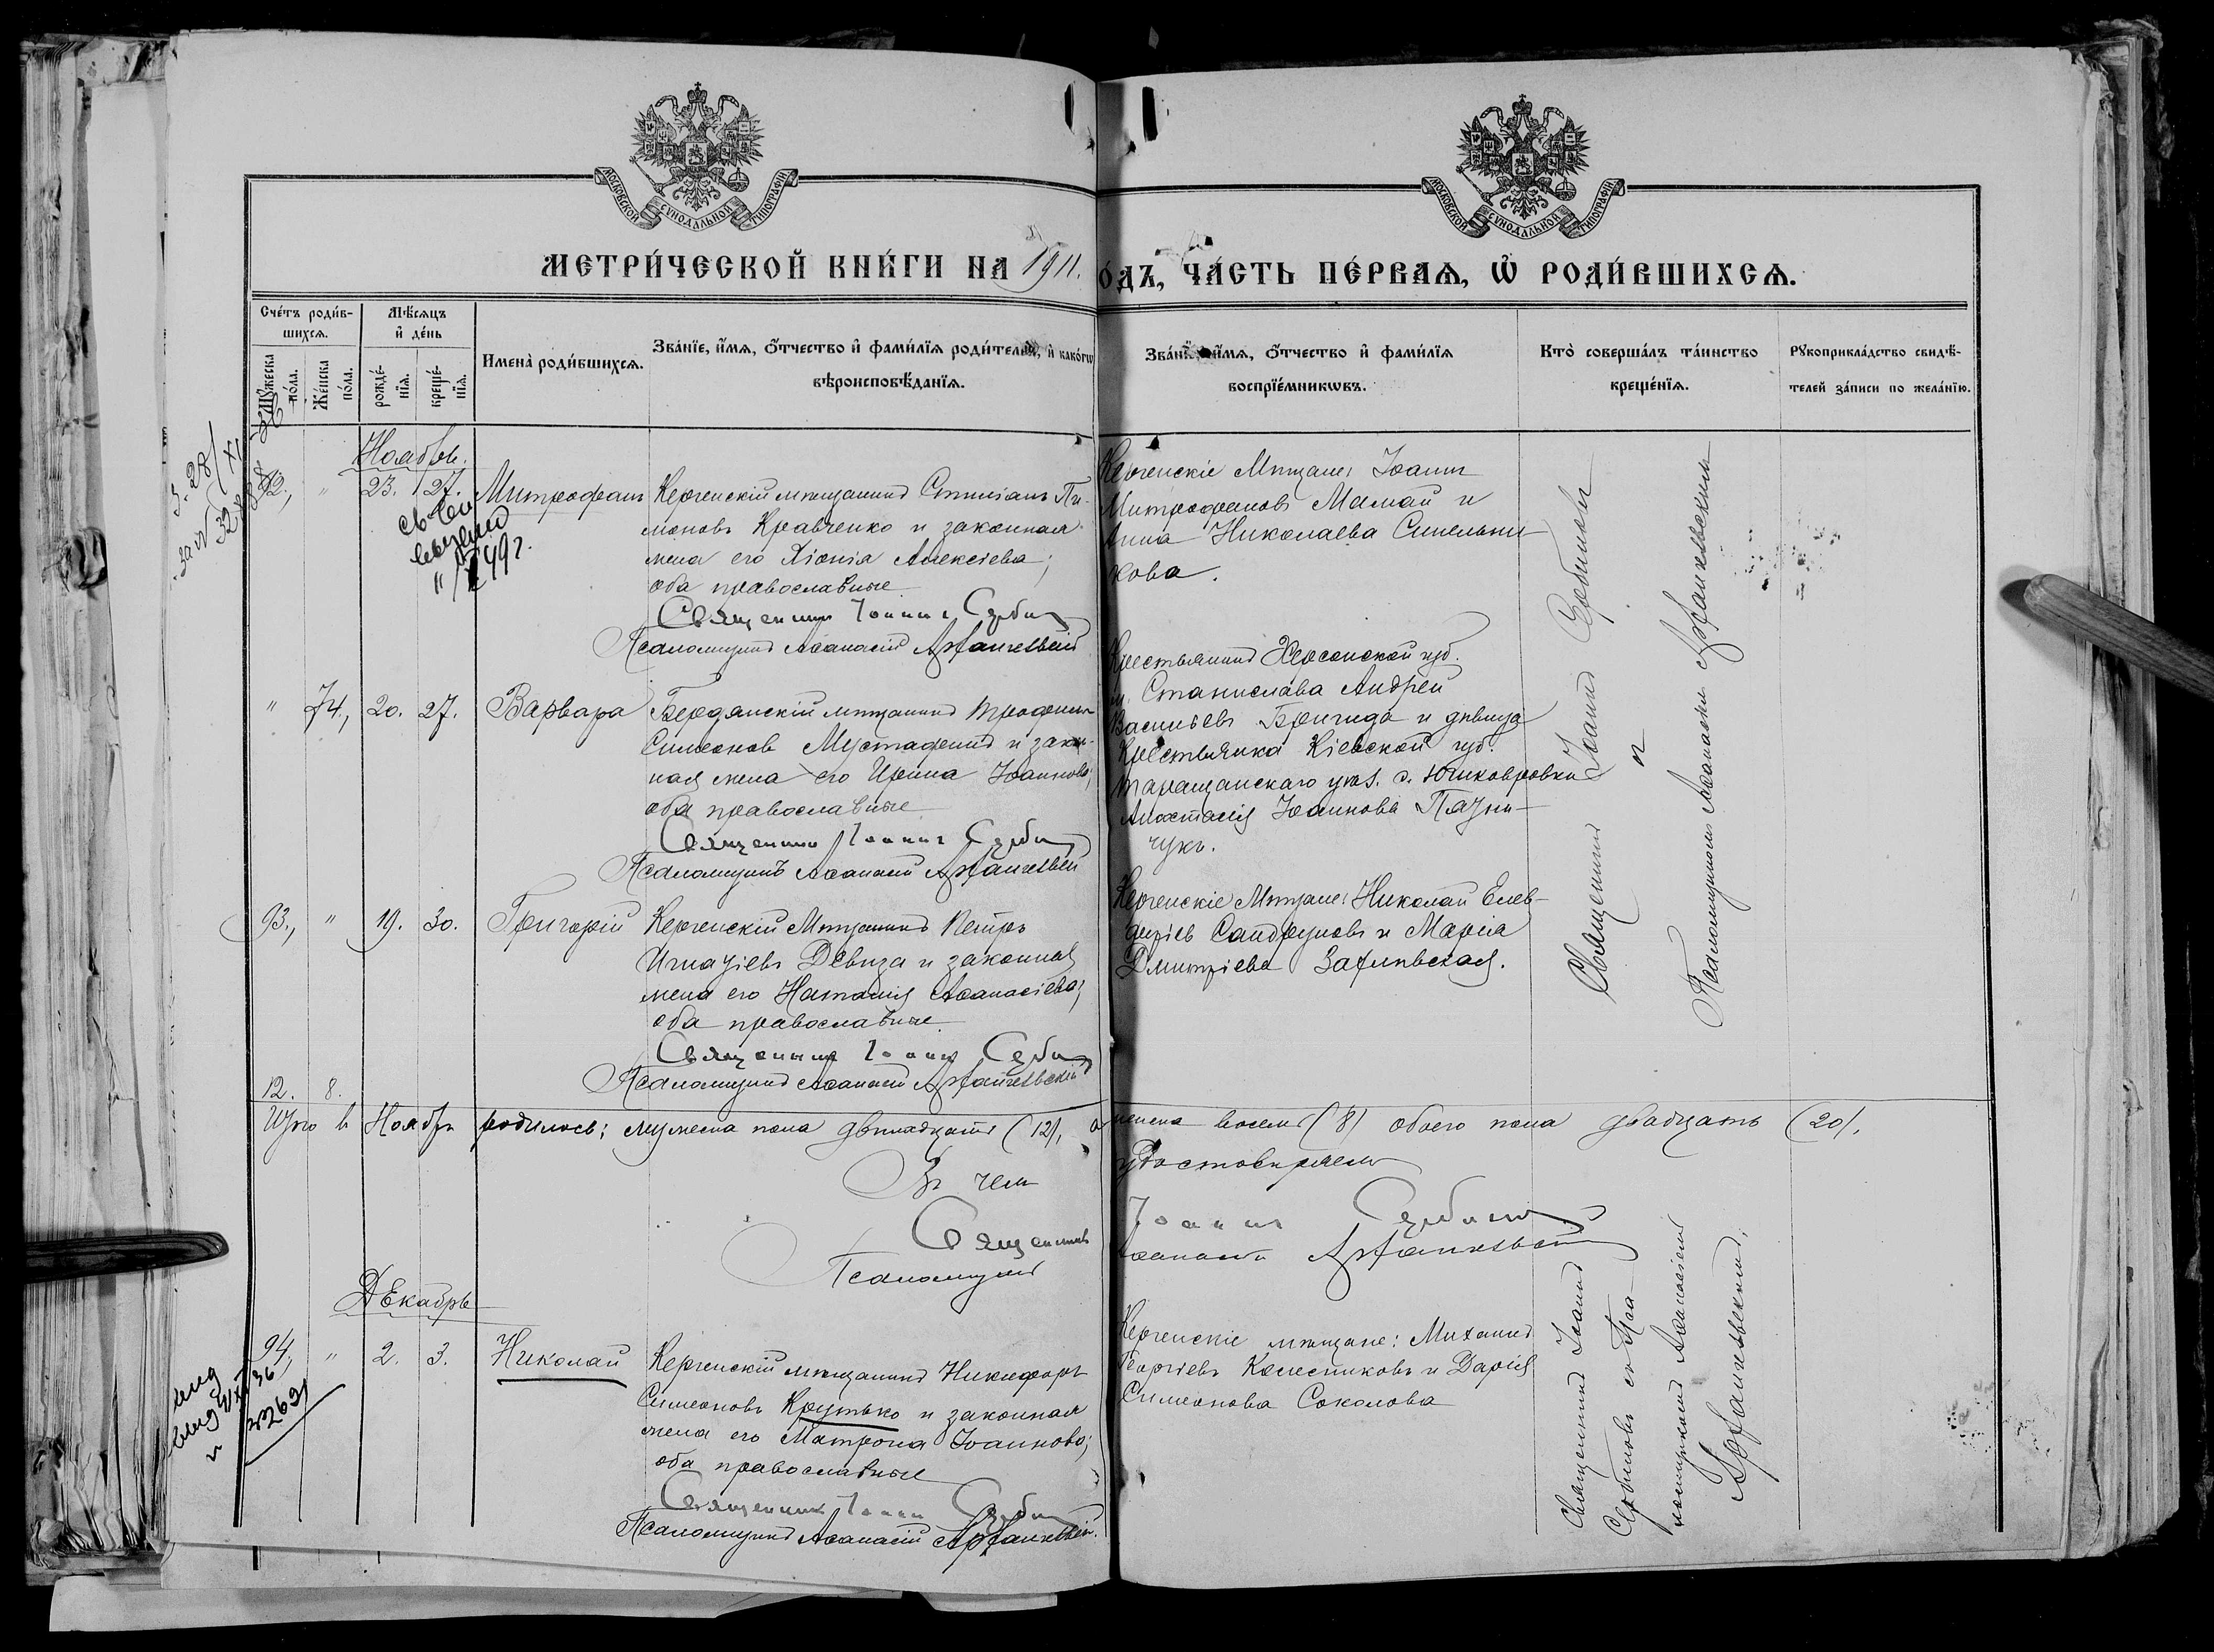 МОСКОВСКОЙ СУНОДАЛЬНОЙ ТИПОГРАФІИ
МОСКОВСКОЙ СУНОДАЛЬНОЙ ТИПОГРАФІИ
МЕТРИ́ЧЕСКОЙ КНИ́ГИ НА 1911.
ÓДЪ, ЧА́СТЬ ПЕ́РВАѦ, Ѡ҆ РОДИ́ВШИХСѦ.
Сче́тъ роди́в-
шихсѧ.
Мѣ́сѧцъ
и҆ де́нь
Мꙋ́жеска по́ла.
Же́нска по́ла.
рожде́-
нїѧ.
креще́-
нїѧ.
Имена̀ роди́вшихсѧ.
Зва́нїе, и҆́мѧ, ѻ҆́тчество и҆ фами́лїѧ роди́телей, и҆ како́гѡ
вѣроисповѣ́данїѧ.
Зва́нїе, и҆́мѧ, ѻ҆́тчество и҆ фами́лїѧ
воспрїе́мникѡвъ.
Кто̀ соверша́лъ та́инство
креще́нїѧ.
Рꙋкоприкла́дство свидѣ́-
телей за́писи по жела́нїю.
Ноябрь.
92., " 23. 27. Митрофанъ
Керченскій мѣщанинъ Стилианъ Пи-
моновъ Кравченко и законная
жена его Хіонія Алексіева;
оба православные
Священникъ Іоаннъ Сербин
Псаломщикъ Аѳанасій Архангельскій
Керченскіе Мѣщане: Іоаннъ
Митрофановъ Мамай и
Анна Николаева Синельни-
кова.
" 74., 20. 27. Варвара
Бердянскій мѣщанинъ Трофимъ
Симеоновъ Мустафинъ и закон-
ная жена его Ирина Іоаннова;
оба православные
Священникъ Іоаннъ Сербин
Псаломщикъ Аѳанасій Архангельскій
Крестьянинъ Херсонской губ.
м. Станислава Андрей
Васильевъ Бригида и дѣвица
Крестьянка Кіевской губ.
Таращанскаго уѣз. с. Юшковровки
Анастасія Іоаннова Пазы-
чукъ.
93., " 19. 30. Григорій
Керченскій Мѣщанинъ Петръ
Игнатіевъ Девиза и законная
жена его Наталія Аѳанасіева;
оба православные
Священникъ Іоаннъ Сербин
Псаломщикъ Аѳанасій Архангельскій
Керченскіе Мѣщане: Николай Елев-
ѳеріевъ Сандруковъ и Марія
Дмитріева
Священникъ Іоаннъ Сербиновъ
и
Псаломщикомъ Аѳанасіемъ Архангельскимъ
12. 8.
Итого въ Ноябрѣ родилось: мужеска пола двѣнадцать (12), а женска восемь (8) обоего пола двадцать (20).
Въ чемъ удостовѣряемъ
Священникъ Іоаннъ Сербинъ
Псаломщикъ Аѳанасій Архангельскій
Декабрь
94, " 2. 3. Николай
Керченскій мѣщанинъ Никифоръ
Симеоновъ Крутько и законная
жена его Матрона Іоаннова;
оба православные
Священникъ Іоаннъ Сербин
Псаломщикъ Аѳанасій Архангельскій.
Керченскіе мѣщане: Михаилъ
Георгіевъ Колесниковъ и Дарія
Симеонова Соколова
Священникъ Іоаннъ
Сербиновъ съ Пса-
ломщикомъ Аѳанасіемъ
Архангельскимъ.